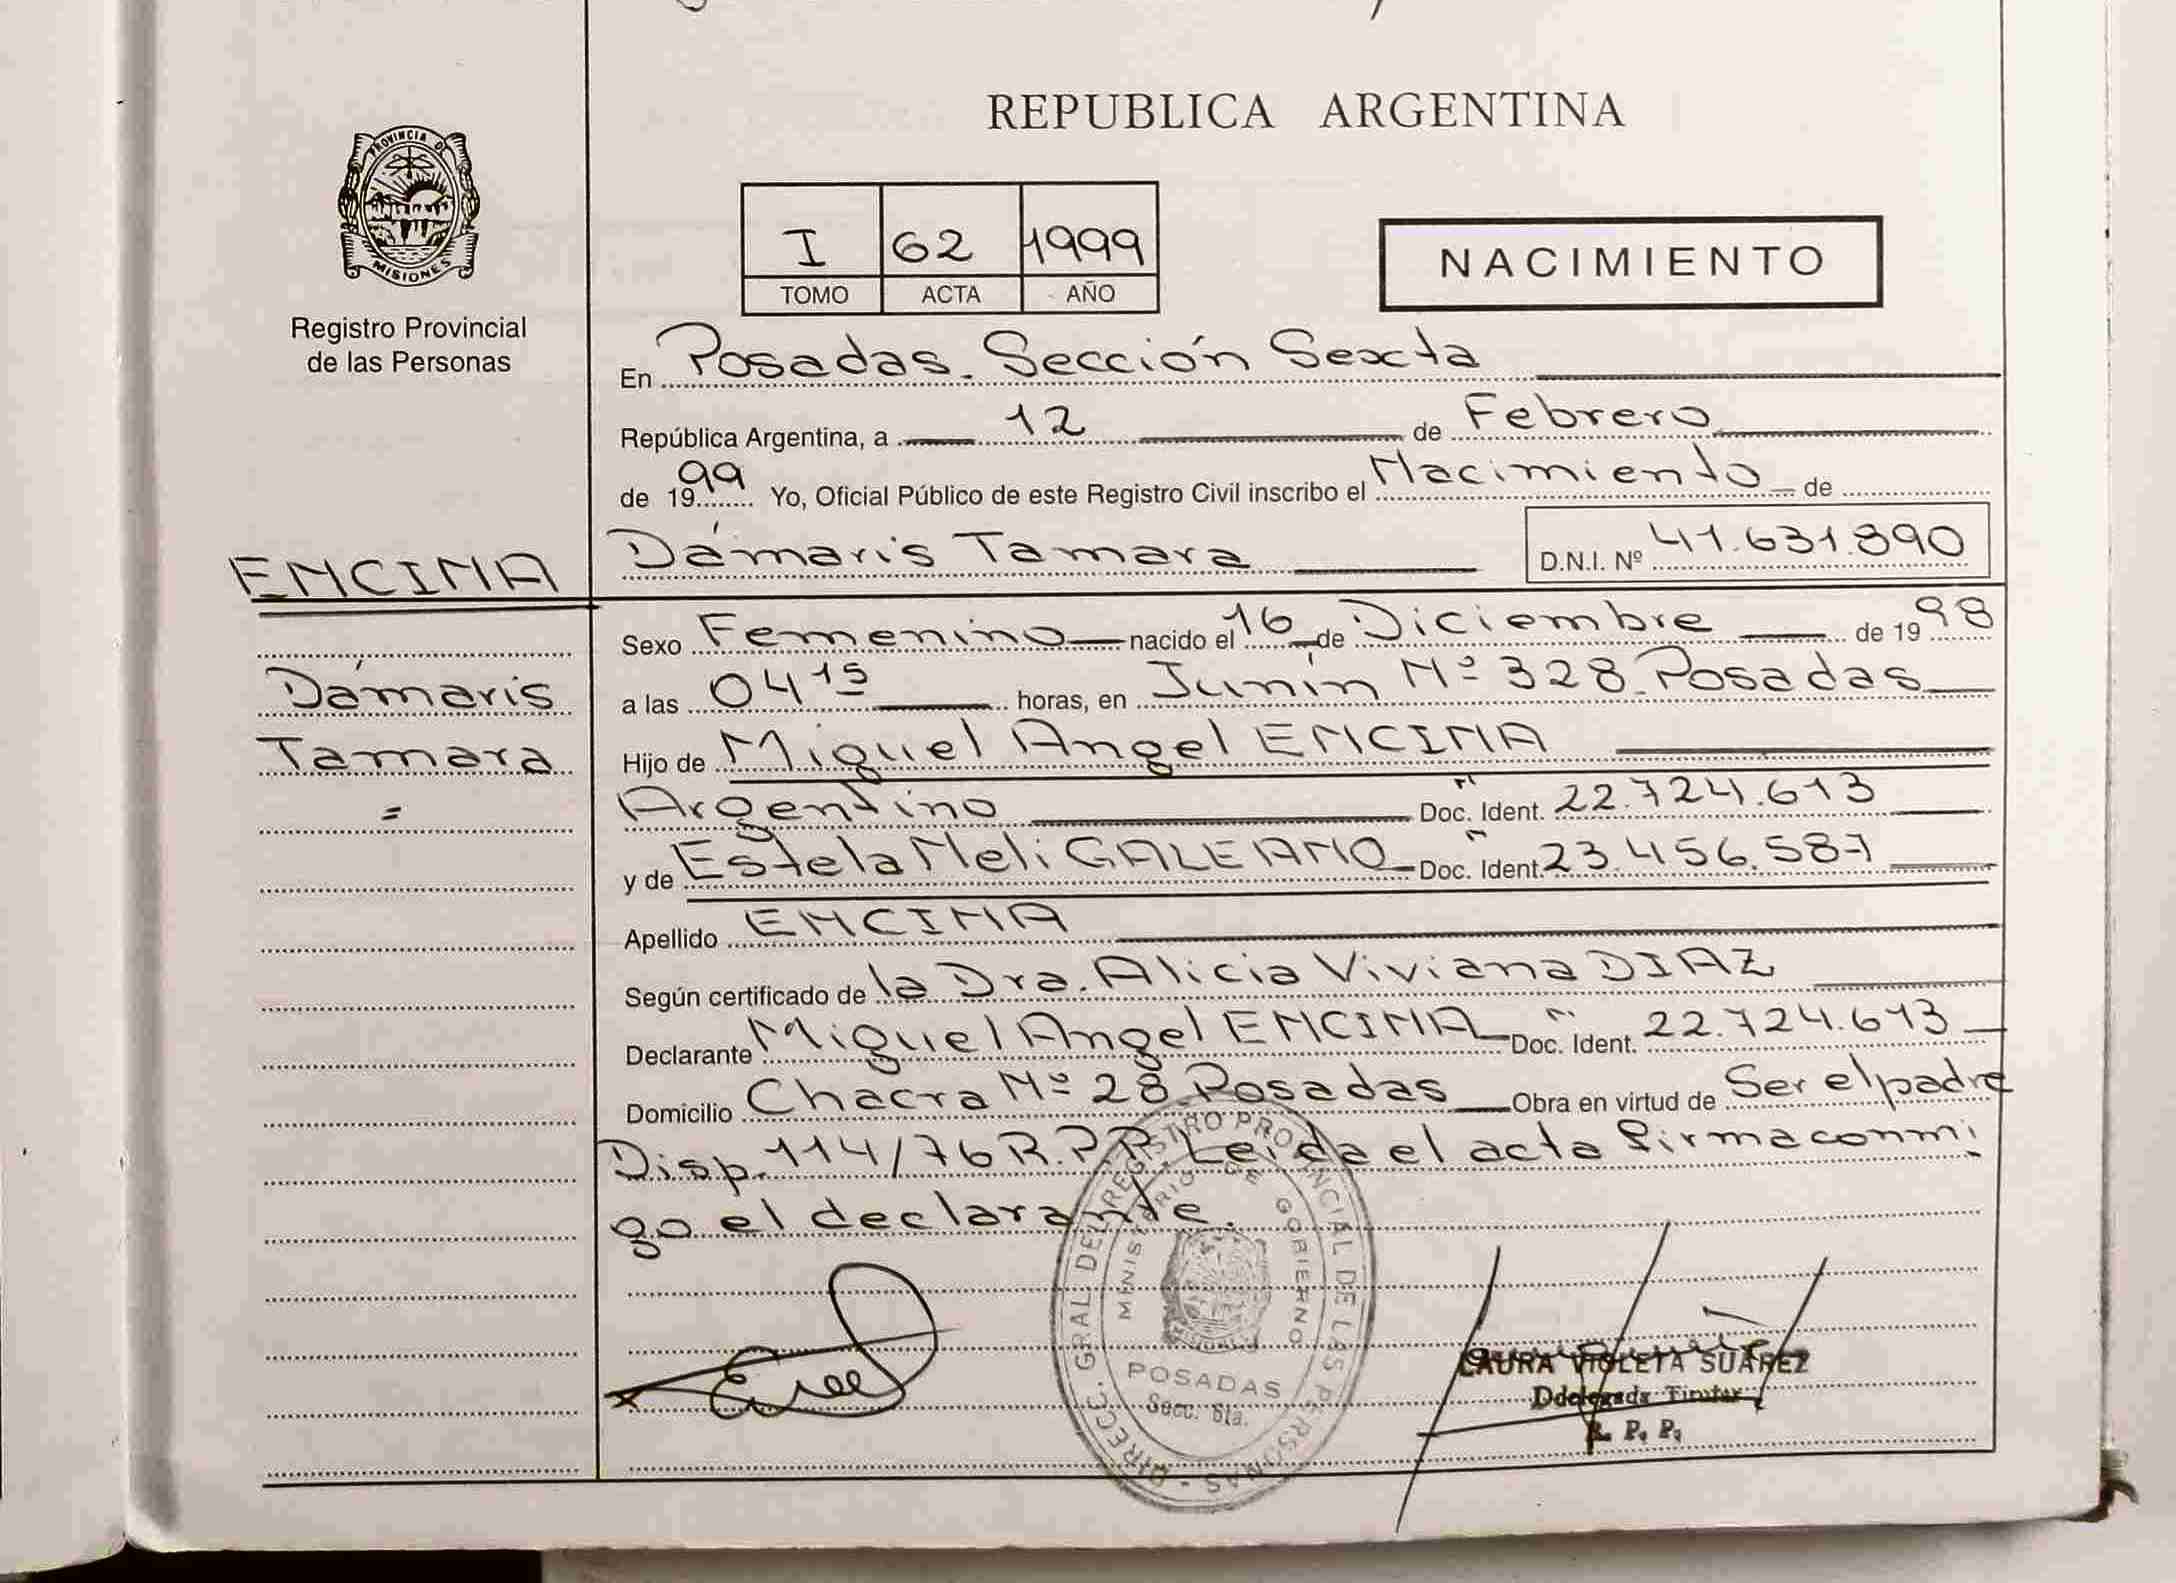 REPUBLICA ARGENTINA
PROVINCIA DE MISIONES
Registro Provincial
de las Personas
I 62 1999
TOMO ACTA AÑO
NACIMIENTO
En Posadas. Sección Sexta
República Argentina, a 12 de Febrero
de 1999 Yo, Oficial Público de este Registro Civil inscribo el Nacimiento de
Dámaris Tamara D.N.I. Nº 41.631.890
ENCINA
Dámaris
Tamara
=
Sexo Femenino nacido el 16 de Diciembre de 1998
a las 04 15 horas, en Junín Nº 328. Posadas
Hijo de Miguel Angel ENCINA
Argentino Doc. Ident. 22.724.613
y de Estela Neli GALEANO Doc. Ident. 23.456.587
Apellido ENCINA
Según certificado de la Dra. Alicia Viviana DIAZ
Declarante Miguel Angel ENCINA Doc. Ident. 22.724.613
Domicilio Chacra Nº 28 Posadas Obra en virtud de Ser el padre
Disp. 114/76 R.P.P. Leída el acta firma conmi
go el declarante.
DIRECC. GRAL DEL REGISTRO PROVINCIAL DE LAS PERSONAS -
MINISTERIO DE GOBIERNO
POSADAS
Secc. 6ta.
LAURA VIOLETA SUAREZ
Ddelegada Titular
R. P. P.